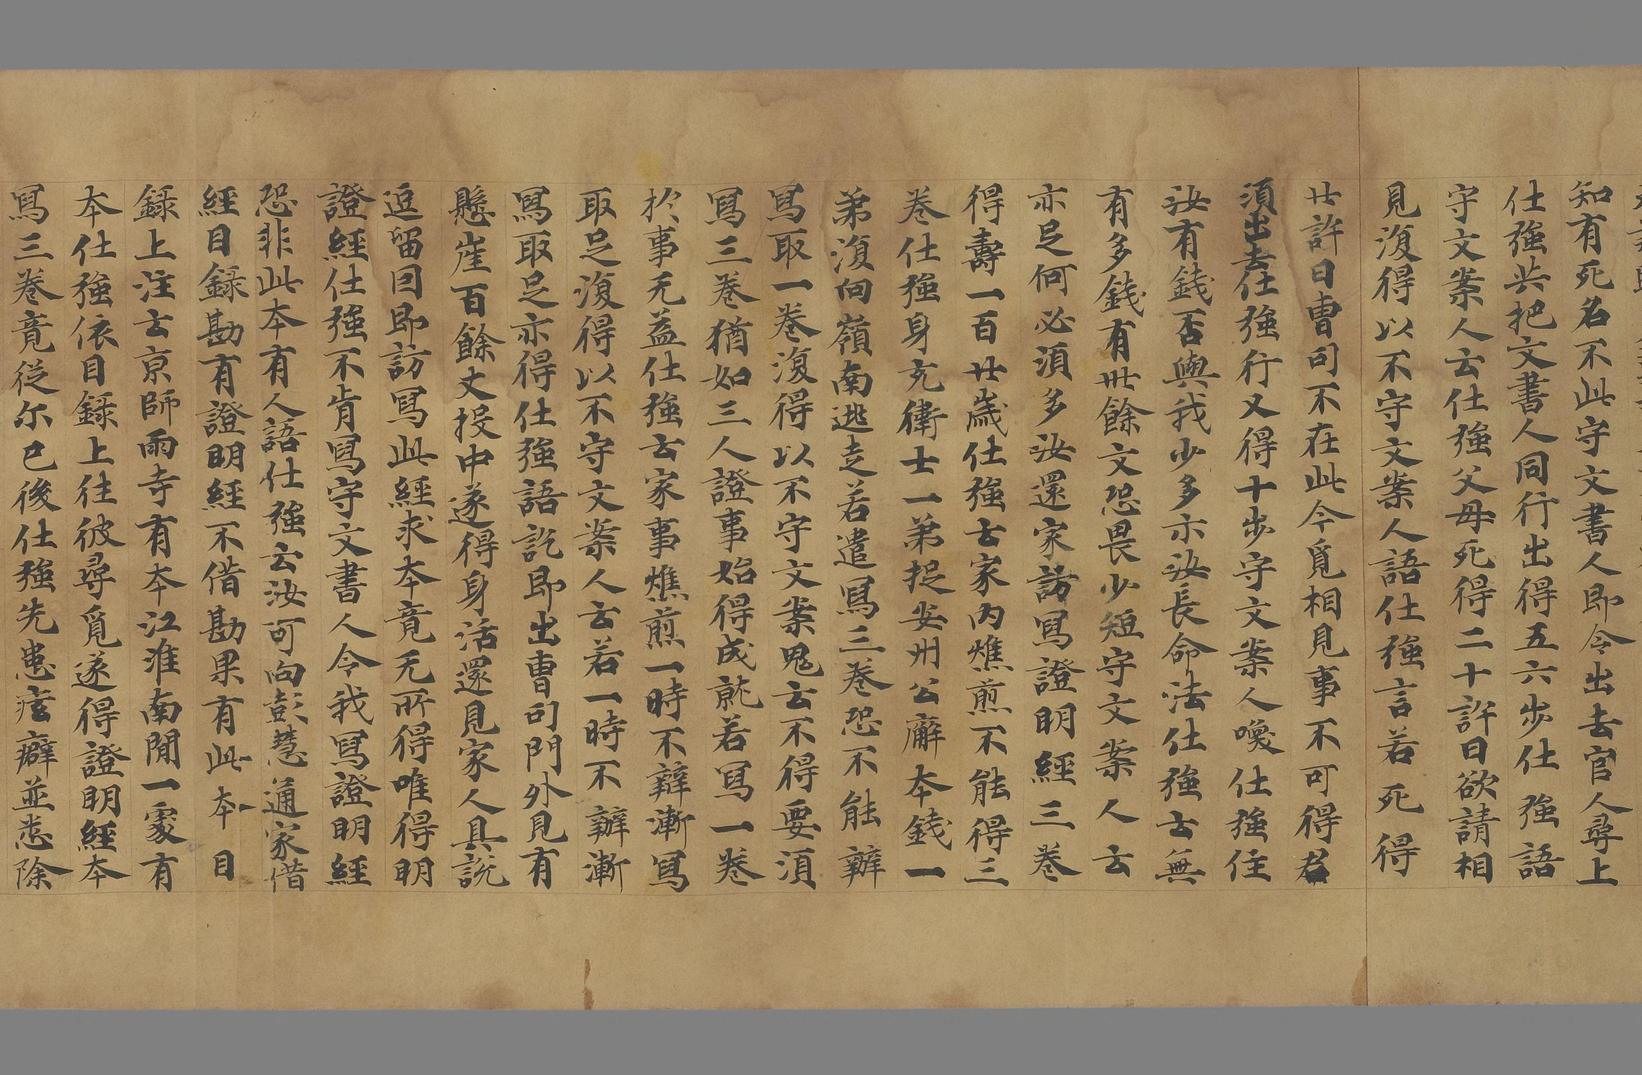 知有死名不此守文書人即令出去官人尋上
仕強共把文書人同行出得五六步仕強語
守文案人云仕強父母死得二十許日欲請相
見復得以不守文案人語仕強言若死得
廿許日曹司不在此今覓相見事不可得
須出去仕強行又得十步守文案人喚仕強住
汝有錢否與我少多示汝長命法仕強云無
有多錢有卅餘文恐畏少短守文案人云
亦足何必須多汝還家訪寫證明經三卷
得壽一百廿歲仕強云家內燋煎不能得三
卷仕強身充衛士一弟捉安州公廨本錢一
弟復向嶺南逃走若遣寫三卷恐不能辦
寫取一卷復得以不守文案鬼云不得要須
寫三卷猶如三人證事始得成就若寫一卷
於事无益仕強云家事燋煎一時不辦漸寫
取足復得以不守文案人云若一時不辦漸
寫取足亦得仕強語訖即出曹司門外見有
懸崖百餘丈投中遂得身活還見家人具說
逗留因即訪寫此經求本竟无所得唯得明
證經仕強不肯寫守文書人令我寫證明經
恐非此本有人語仕強云汝可向彭慧通家借
經目錄勘有證明經不借勘果有此本目
錄上注云京師兩寺有本江淮南閒一處有
本仕強依目錄上往彼尋覓遂得證明經本
寫三卷竟從尔已後仕強先患痃癖並悉除